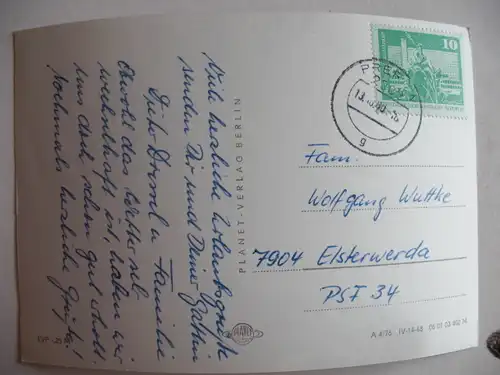 Viele herzliche Urlaubsgrüße
senden Dir und Deiner Gattin
Familie
Obwohl das Wetter sehr
wechselhaft ist, haben wir
uns doch schon gut erholt.
Nochmals herzliche Grüße!
PLANET-VERLAG BERLIN
PLANET
10
PRE
13.
-16
g
Fam.
Wolfgang Wuttke
7904 Elsterwerda
PSF 34
A 4/76 IV-14-48 06 01 03 402 N
EVP